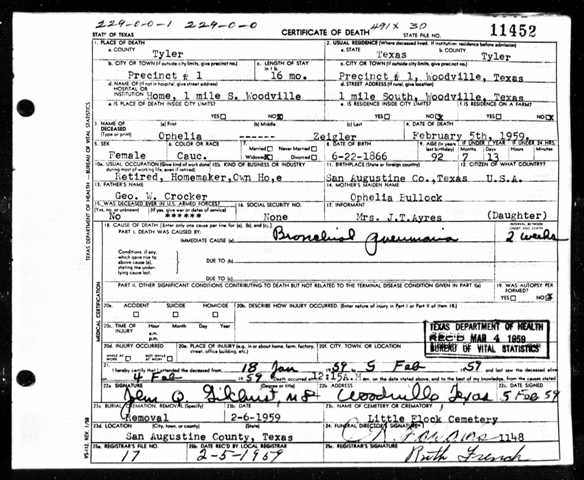 229-0-0-1 229-0-0 491X 30
STATE OF TEXAS CERTIFICATE OF DEATH STATE FILE NO. 11452
1. PLACE OF DEATH 2. USUAL RESIDENCE (Where deceased lived. If institution: residence before admission)
a. COUNTY Tyler a. STATE Texas b. COUNTY Tyler
b. CITY OR TOWN (If outside city limits, give precinct no.) c. LENGTH OF STAY c. CITY OR TOWN (If outside city limits, give precinct no.)
Precinct # 1 16 mo. Precinct # 1, Woodville, Texas
d. NAME OF (If not in hospital, give street address) d. STREET ADDRESS (If rural, give location)
HOSPITAL OR INSTITUTION Home, 1 mile S. Woodville 1 mile South, Woodville, Texas
e. IS PLACE OF DEATH INSIDE CITY LIMITS? e. IS RESIDENCE INSIDE CITY LIMITS? f. IS RESIDENCE ON A FARM?
YES NO YES NO YES NO
3. NAME OF DECEASED (Type or print) (a) First (b) Middle (c) Last 4. DATE OF DEATH
Ophelia ------ Zeigler February 5th, 1959
5. SEX 6. COLOR OR RACE 7. Married Never Married Widowed Divorced 8. DATE OF BIRTH 9. AGE (In years last birthday) IF UNDER 1 YEAR IF UNDER 24 HRS.
Female Cauc. 6-22-1866 92 7 13
10a. USUAL OCCUPATION (Give kind of work done 10b. KIND OF BUSINESS OR INDUSTRY 11. BIRTHPLACE (State or foreign country) 12. CITIZEN OF WHAT COUNTRY?
Retired, Homemaker,Own Ho,e San Augustine Co.,Texas U.S.A.
13. FATHER'S NAME 14. MOTHER'S MAIDEN NAME
Geo. W. Crocker Ophelia Bullock
15. WAS DECEASED EVER IN U.S. ARMED FORCES? 16. SOCIAL SECURITY NO. 17. INFORMANT
(Yes, no, or unknown) (If yes, give war or dates of service)
No ****** None Mrs. J.T.Ayres (Daughter)
18. CAUSE OF DEATH [Enter only one cause per line for (a), (b), and (c).] INTERVAL BETWEEN ONSET AND DEATH
PART I. DEATH WAS CAUSED BY:
IMMEDIATE CAUSE (a) Bronchial pneumonia 2 weeks
Conditions, if any, which gave rise to above cause (a), stating the underlying cause last.
DUE TO (b)
DUE TO (c)
PART II. OTHER SIGNIFICANT CONDITIONS CONTRIBUTING TO DEATH BUT NOT RELATED TO THE TERMINAL DISEASE CONDITION GIVEN IN PART I(a) 19. WAS AUTOPSY PERFORMED?
YES NO
20a. ACCIDENT SUICIDE HOMICIDE 20b. DESCRIBE HOW INJURY OCCURRED. (Enter nature of injury in Part I or Part II of item 18.)
20c. TIME OF INJURY Hour Month Day Year
20d. INJURY OCCURRED 20e. PLACE OF INJURY (e.g., in or about home, farm, factory, street, office building, etc.) 20f. CITY, TOWN, OR LOCATION
WHILE AT WORK NOT WHILE AT WORK
TEXAS DEPARTMENT OF HEALTH
REC'D MAR 4 1959
BUREAU OF VITAL STATISTICS
21. I hereby certify that I attended the deceased from 18 Jan 59 5 Feb 59
4 Feb 59 Death occurred at 12:15A.M. on the date stated above, and to the best of my knowledge, from the causes stated.
22a. SIGNATURE 22b. ADDRESS 22c. DATE SIGNED
John Q. Gilchrist, MD Woodville Texas 5 Feb 59
23a. BURIAL, CREMATION, REMOVAL (Specify) 23b. DATE 23c. NAME OF CEMETERY OR CREMATORY
Removal 2-6-1959 Little Flock Cemetery
23d. LOCATION (City, town, or county) (State) 24. FUNERAL DIRECTOR'S SIGNATURE
San Augustine County, Texas 1148
25a. REGISTRAR'S FILE NO. 25b. DATE REC'D BY LOCAL REGISTRAR 25c. REGISTRAR'S SIGNATURE
17 2-5-1959 Ruth French
TEXAS DEPARTMENT OF HEALTH — BUREAU OF VITAL STATISTICS
MEDICAL CERTIFICATION